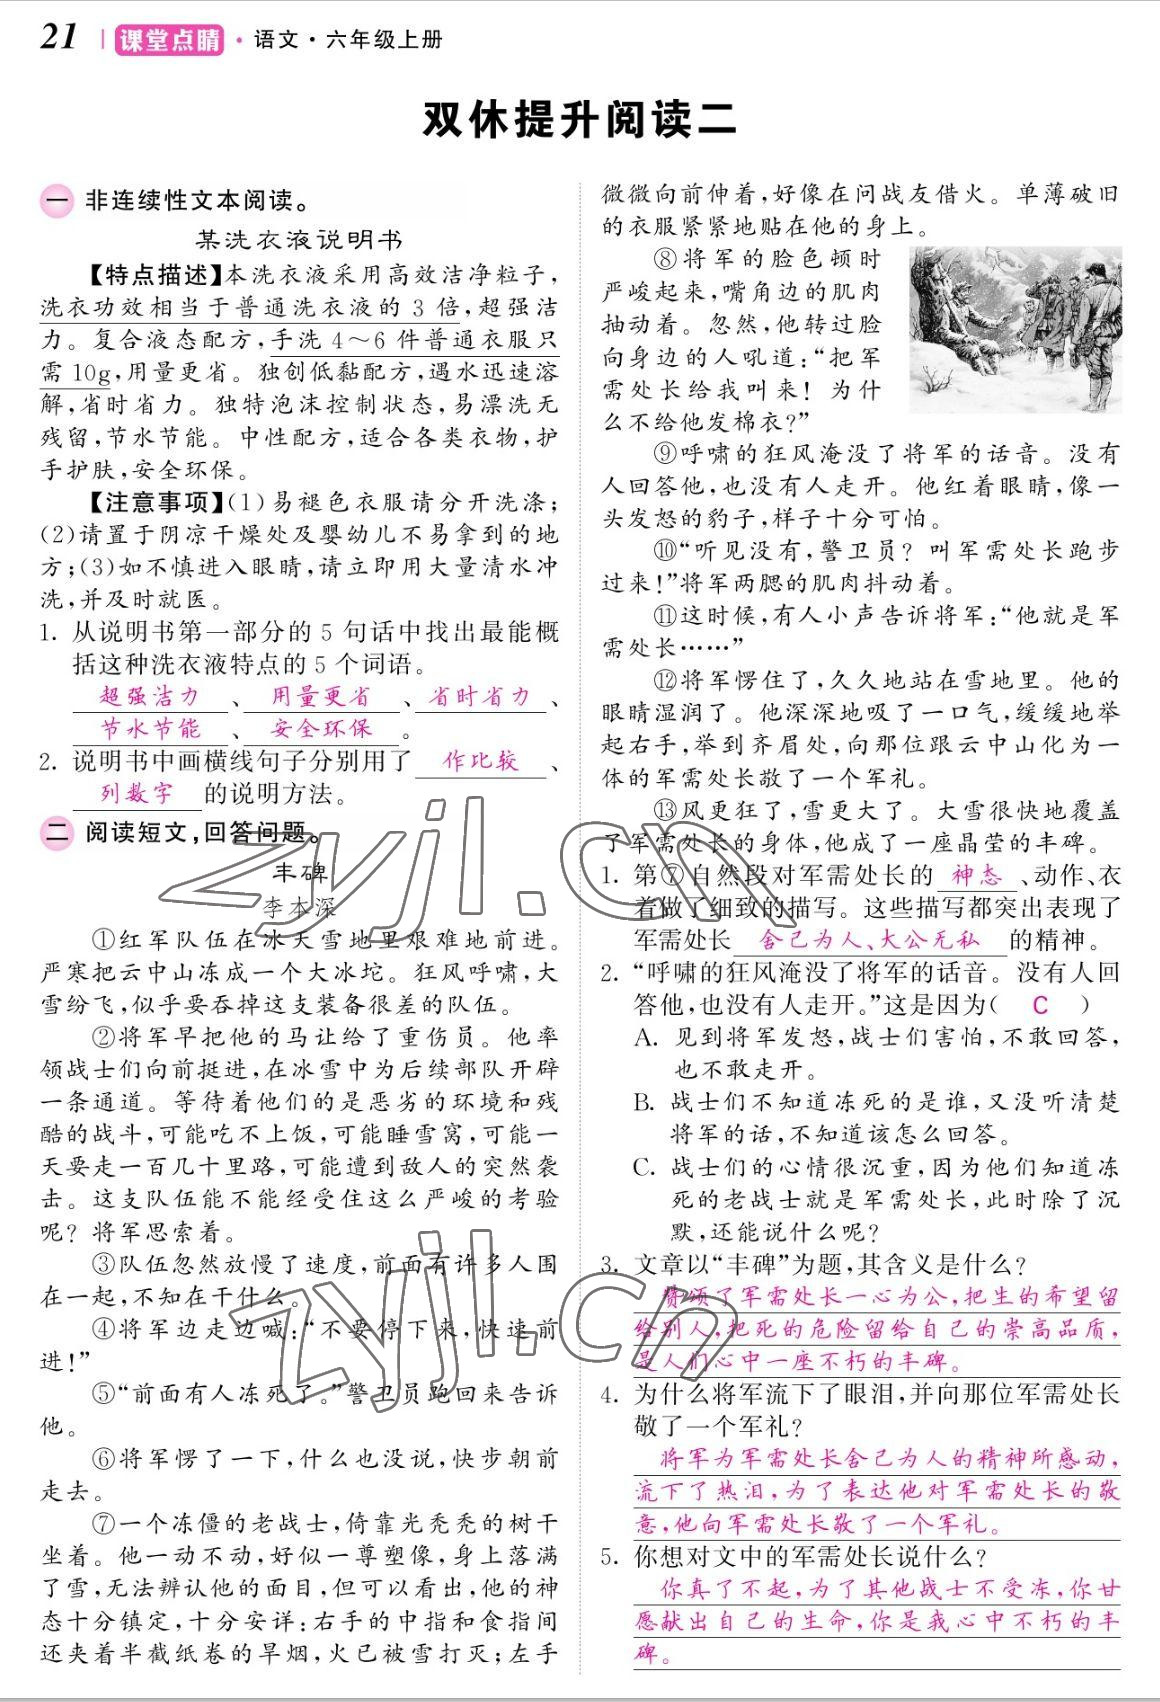 21 课堂点睛·语文·六年级上册
双休提升阅读二
一 非连续性文本阅读。
某洗衣液说明书
【特点描述】本洗衣液采用高效洁净粒子,
洗衣功效相当于普通洗衣液的 3 倍,超强洁
力。复合液态配方,手洗 4～6 件普通衣服只
需 10g,用量更省。独创低黏配方,遇水迅速溶
解,省时省力。独特泡沫控制状态,易漂洗无
残留,节水节能。中性配方,适合各类衣物,护
手护肤,安全环保。
【注意事项】(1)易褪色衣服请分开洗涤;
(2)请置于阴凉干燥处及婴幼儿不易拿到的地
方;(3)如不慎进入眼睛,请立即用大量清水冲
洗,并及时就医。
1. 从说明书第一部分的 5 句话中找出最能概
括这种洗衣液特点的 5 个词语。
超强洁力、用量更省、省时省力、
节水节能、安全环保。
2. 说明书中画横线句子分别用了 作比较、
列数字 的说明方法。
二 阅读短文,回答问题。
丰碑
李本深
①红军队伍在冰天雪地里艰难地前进。
严寒把云中山冻成一个大冰坨。狂风呼啸,大
雪纷飞,似乎要吞掉这支装备很差的队伍。
②将军早把他的马让给了重伤员。他率
领战士们向前挺进,在冰雪中为后续部队开辟
一条通道。等待着他们的是恶劣的环境和残
酷的战斗,可能吃不上饭,可能睡雪窝,可能一
天要走一百几十里路,可能遭到敌人的突然袭
击。这支队伍能不能经受住这么严峻的考验
呢？将军思索着。
③队伍忽然放慢了速度,前面有许多人围
在一起,不知在干什么。
④将军边走边喊:“不要停下来,快速前
进!”
⑤“前面有人冻死了。”警卫员跑回来告诉
他。
⑥将军愣了一下,什么也没说,快步朝前
走去。
⑦一个冻僵的老战士,倚靠光秃秃的树干
坐着。他一动不动,好似一尊塑像,身上落满
了雪,无法辨认他的面目,但可以看出,他的神
态十分镇定,十分安详:右手的中指和食指间
还夹着半截纸卷的旱烟,火已被雪打灭;左手
微微向前伸着,好像在问战友借火。单薄破旧
的衣服紧紧地贴在他的身上。
⑧将军的脸色顿时
严峻起来,嘴角边的肌肉
抽动着。忽然,他转过脸
向身边的人吼道:“把军
需处长给我叫来！为什
么不给他发棉衣?”
⑨呼啸的狂风淹没了将军的话音。没有
人回答他,也没有人走开。他红着眼睛,像一
头发怒的豹子,样子十分可怕。
⑩“听见没有,警卫员？叫军需处长跑步
过来!”将军两腮的肌肉抖动着。
⑪这时候,有人小声告诉将军:“他就是军
需处长……”
⑫将军愣住了,久久地站在雪地里。他的
眼睛湿润了。他深深地吸了一口气,缓缓地举
起右手,举到齐眉处,向那位跟云中山化为一
体的军需处长敬了一个军礼。
⑬风更狂了,雪更大了。大雪很快地覆盖
了军需处长的身体,他成了一座晶莹的丰碑。
1. 第⑦自然段对军需处长的 神态、动作、衣
着做了细致的描写。这些描写都突出表现了
军需处长 舍己为人、大公无私 的精神。
2. “呼啸的狂风淹没了将军的话音。没有人回
答他,也没有人走开。”这是因为( C )
A. 见到将军发怒,战士们害怕,不敢回答,
也不敢走开。
B. 战士们不知道冻死的是谁,又没听清楚
将军的话,不知道该怎么回答。
C. 战士们的心情很沉重,因为他们知道冻
死的老战士就是军需处长,此时除了沉
默,还能说什么呢?
3. 文章以“丰碑”为题,其含义是什么?
赞颂了军需处长一心为公,把生的希望留
给别人,把死的危险留给自己的崇高品质,
是人们心中一座不朽的丰碑。
4. 为什么将军流下了眼泪,并向那位军需处长
敬了一个军礼?
将军为军需处长舍己为人的精神所感动,
流下了热泪,为了表达他对军需处长的敬
意,他向军需处长敬了一个军礼。
5. 你想对文中的军需处长说什么?
你真了不起,为了其他战士不受冻,你甘
愿献出自己的生命,你是我心中不朽的丰
碑。
zyjl.cn
zyjl.cn